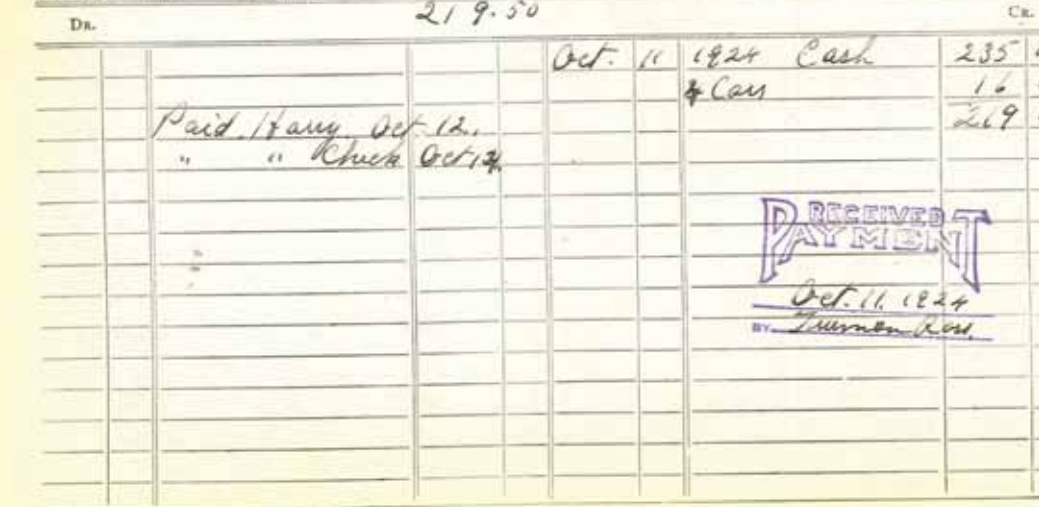 219.50
DR.
CR.
Oct. 11 1924 Cash 235
4 Cars 16
219
Paid Harry Oct 12.
" " Check Oct 12,
RECEIVED PAYMENT
Oct. 11. 1924
BY Truman Ross.